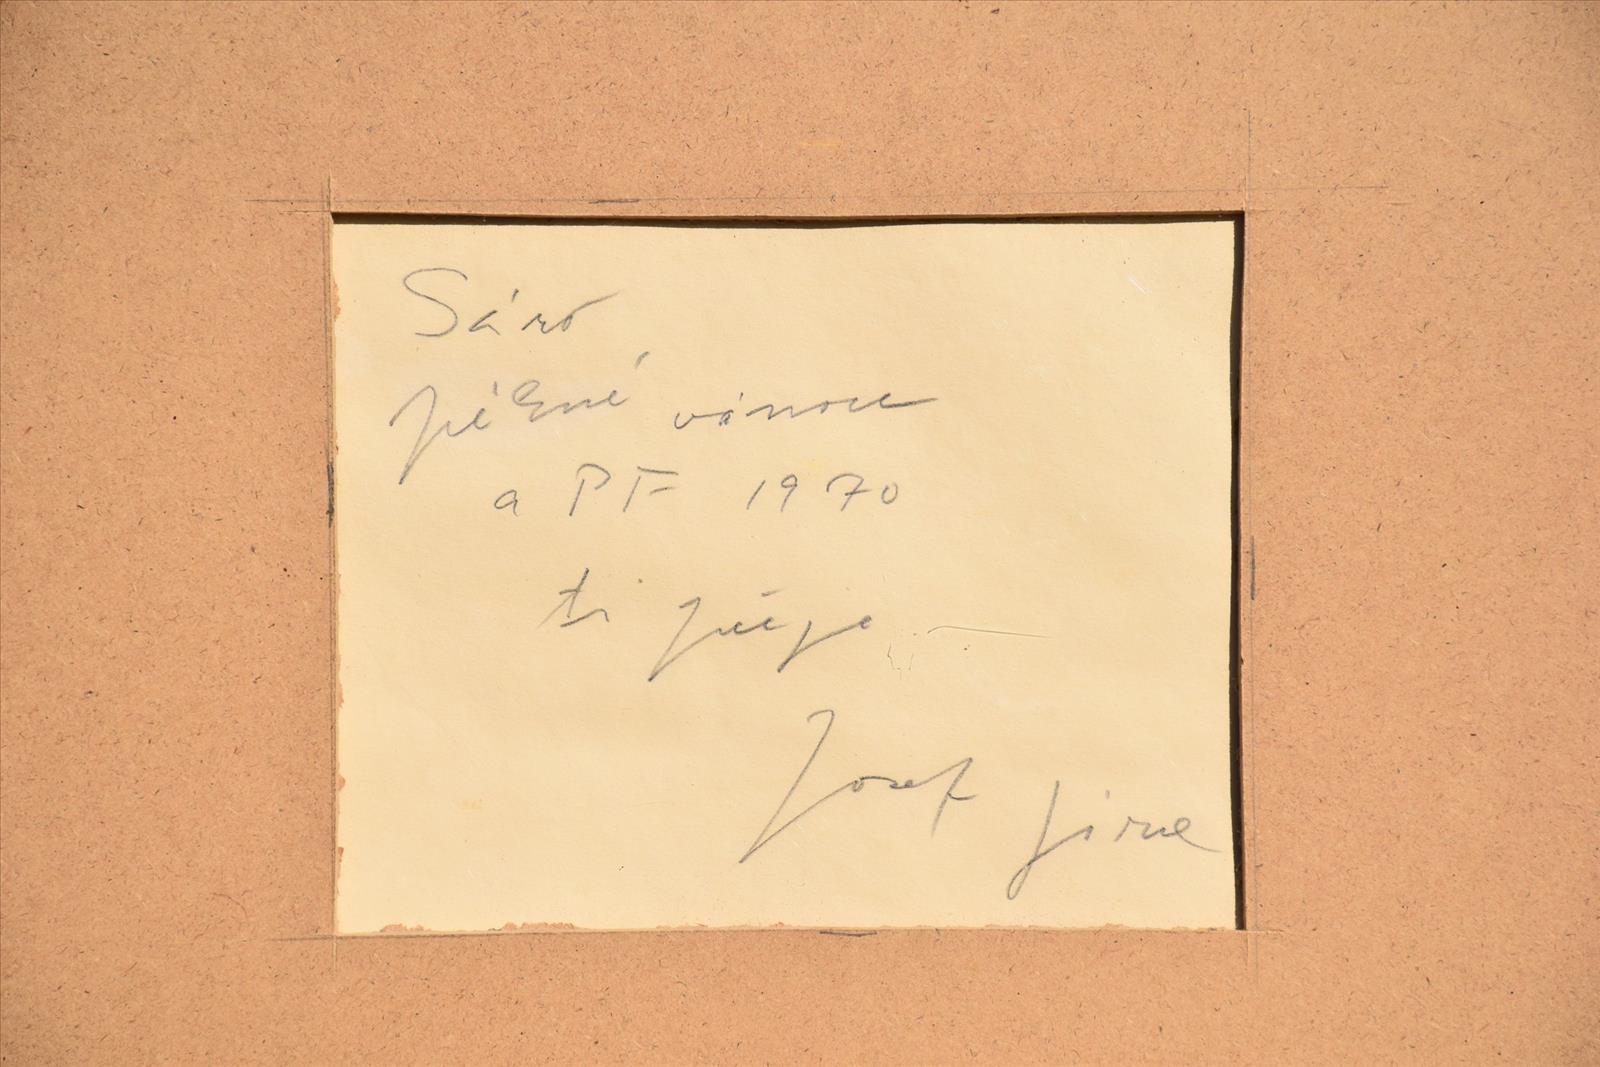 Sáro
pěkné vánoce
a PF 1970
ti přeje
Josef Jíra